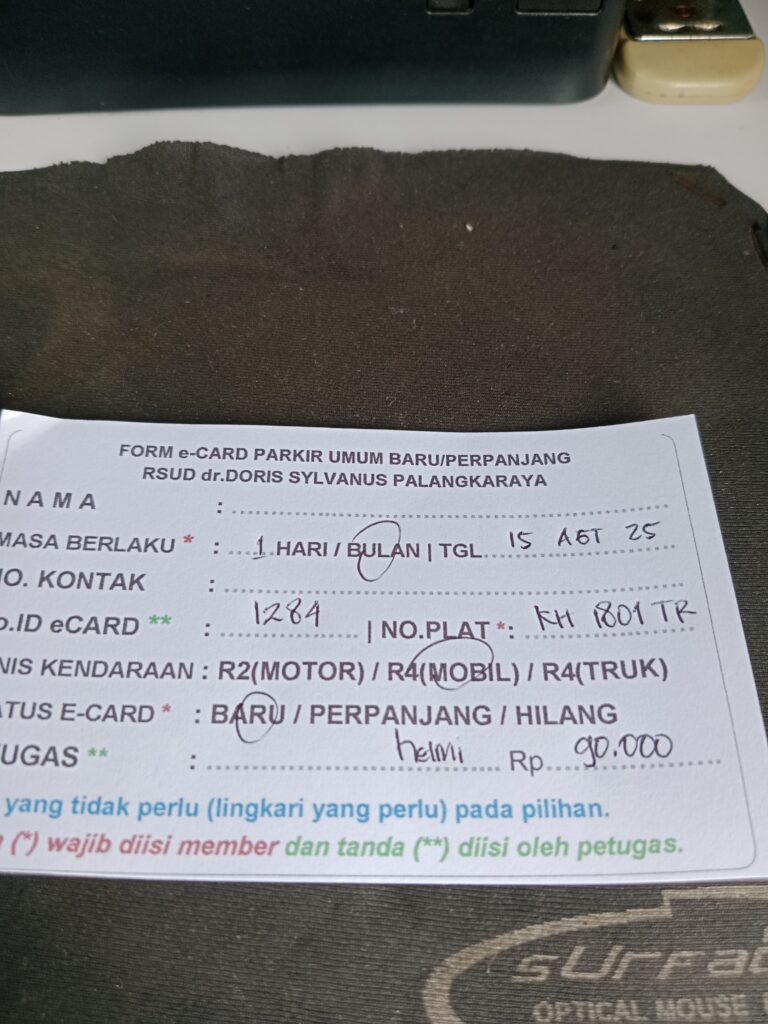 FORM e-CARD PARKIR UMUM BARU/PERPANJANG
RSUD dr.DORIS SYLVANUS PALANGKARAYA
NAMA :
MASA BERLAKU * : 1 HARI / BULAN | TGL 15 AGT 25
NO. KONTAK :
o.ID eCARD ** : 1284 | NO.PLAT *: KH 1801 TR
NIS KENDARAAN : R2(MOTOR) / R4(MOBIL) / R4(TRUK)
ATUS E-CARD * : BARU / PERPANJANG / HILANG
UGAS ** : helmi Rp 90.000
yang tidak perlu (lingkari yang perlu) pada pilihan.
(*) wajib diisi member dan tanda (**) diisi oleh petugas.
surfac
OPTICAL MOUSE